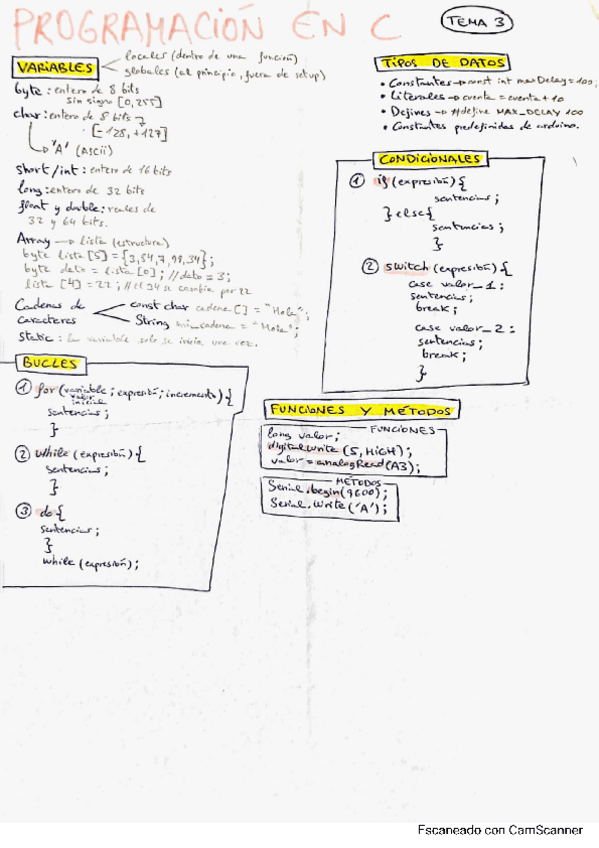 PROGRAMACIÓN EN C
TEMA 3
VARIABLES
locales (dentro de una función)
globales (al principio, fuera de setup)
byte: entero de 8 bits
sin signo [0,255]
char: entero de 8 bits
[-128, +127]
'A' (ASCII)
short/int: entero de 16 bits
long: entero de 32 bits
float y double: reales de
32 y 64 bits.
Array → lista (estructura)
byte lista [5] = {3,54,7,98,34};
byte dato = lista [0]; // dato = 3;
lista [4] = 22; // el 34 se cambia por 22
Cadenas de caracteres
const char cadena [] = "Hola";
String mi_cadena = "Hola";
Static: La variable solo se inicia una vez.
BUCLES
① for (variable; expresión; incremento) {
valor inicial
sentencias;
}
② while (expresión) {
sentencias;
}
③ do {
sentencias;
}
while (expresión);
TIPOS DE DATOS
• Constantes → const int maxDelay = 100;
• Literales → cuenta = cuenta + 10
• Defines → #define MAX_DELAY 100
• Constantes predefinidas de arduino.
CONDICIONALES
① if (expresión) {
sentencias;
} else {
sentencias;
}
② switch (expresión) {
case valor_1:
sentencias;
break;
case valor_2:
sentencias;
break;
}
FUNCIONES Y MÉTODOS
FUNCIONES
long valor;
digitalWrite (5, HIGH);
valor = analogRead (A3);
MÉTODOS
Serial.begin (9600);
Serial.write ('A');
Escaneado con CamScanner